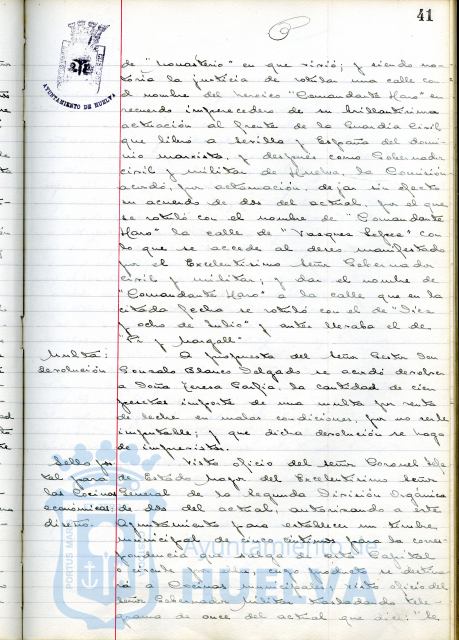 41
AYUNTAMIENTO DE HUELVA
de "Monasterio" en que vivió; y siendo no-
toria la justicia de rotular una calle con
el nombre del heroico "Comandante Haro" en
recuerdo imperecedero de su brillantísima
actuación al frente de la Guardia Civil
que libró a Sevilla y España del domi-
nio marxista, y después como Gobernador
civil y militar de Huelva, la Comisión
acordó, por aclamación, dejar sin efecto
su acuerdo de dos del actual, por el que
se rotuló con el nombre de "Comandante
Haro" la calle de "Vazquez Lopez" con
lo que se accede al deseo manifestado
por el Excelentísimo Señor Gobernador
civil y militar; y dar el nombre de
"Comandante Haro" a la calle que en la
citada fecha se rotuló con el de "Diez
y ocho de Julio" y antes llevaba el de
"Pi y Margall"
Multa: devolución
A propuesta del Señor Gestor Don
Gonzalo Blanco Delgado se acordó devolver
a Doña Teresa la cantidad de cien
pesetas importe de una multa por venta
de leche en malas condiciones, por no serle
imputable; y que dicha devolución se haga
de imprevistos.
Sello para las Cocinas económicas:
Visto oficio del Señor Coronel Jefe
de Estado Mayor del Excelentísimo Señor
General de la Segunda División Orgánica
de dos del actual autorizando a este
Ayuntamiento para establecer un timbre
municipal de cinco céntimos para la corres-
pondencia que salga de esta Capital
o circule por ella, cuyo producto se destina-
rá a Cocinas municipales; visto oficio del
Señor Gobernador Militar trasladando tele-
grama de once del actual que dice: "
PORTUS MARIS
Ayuntamiento de
HUELVA